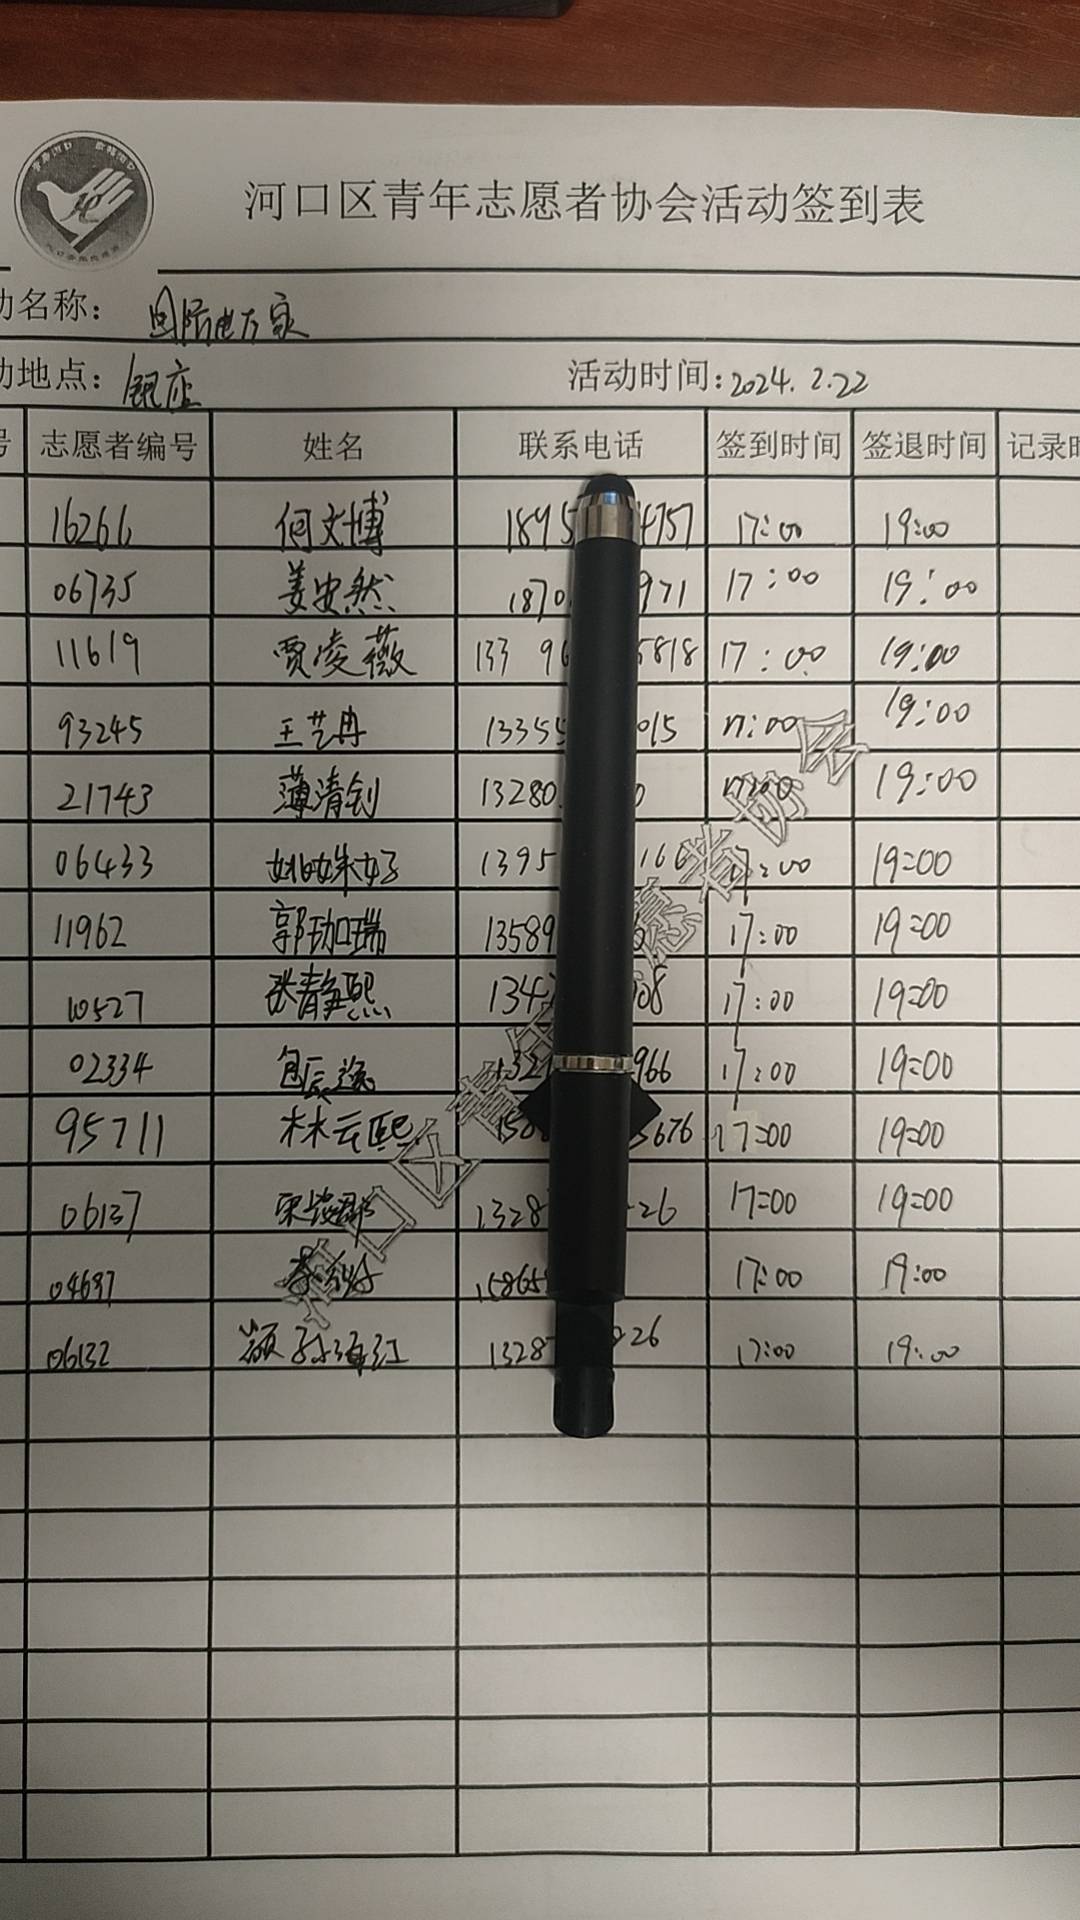 河口区青年志愿者协会活动签到表
动名称：
动地点：银座 活动时间：2024.2.22
号 志愿者编号 姓名 联系电话 签到时间 签退时间 记录时
16266 何文博 1895 4757 17:00 19:00
06735 姜安然 1870 971 17:00 19:00
11619 贾凌薇 133 96 5818 17:00 19:00
93245 王艺冉 13355 015 17:00 19:00
21743 薄清钊 13280 0 17:00 19:00
06433 姚姝妤 1395 166 17:00 19:00
11962 郭珈瑞 13589 17:00 19:00
10527 张静熙 134 08 17:00 19:00
02334 包辰逸 132 966 17:00 19:00
95711 林云熙 158 5676 17:00 19:00
06137 1328 26 17:00 19:00
04637 15865 17:00 19:00
06132 颜孙海红 1328 26 17:00 19:00
河口区青年志愿者协会